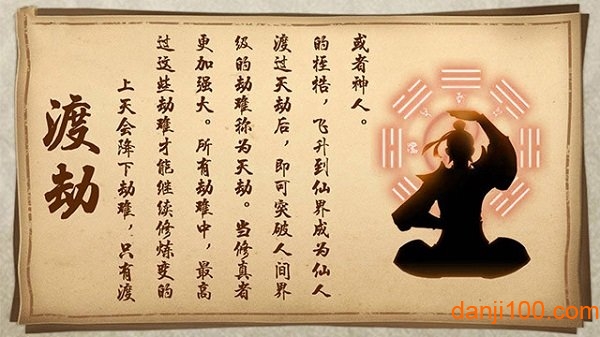 渡劫
上天会降下劫难，只有渡
过这些劫难才能继续修炼变的
更加强大。所有劫难中，最高
级的劫难称为天劫。当修真者
渡过天劫后，即可突破人间界
的桎梏，飞升到仙界成为仙人
或者神人。
danji100.com